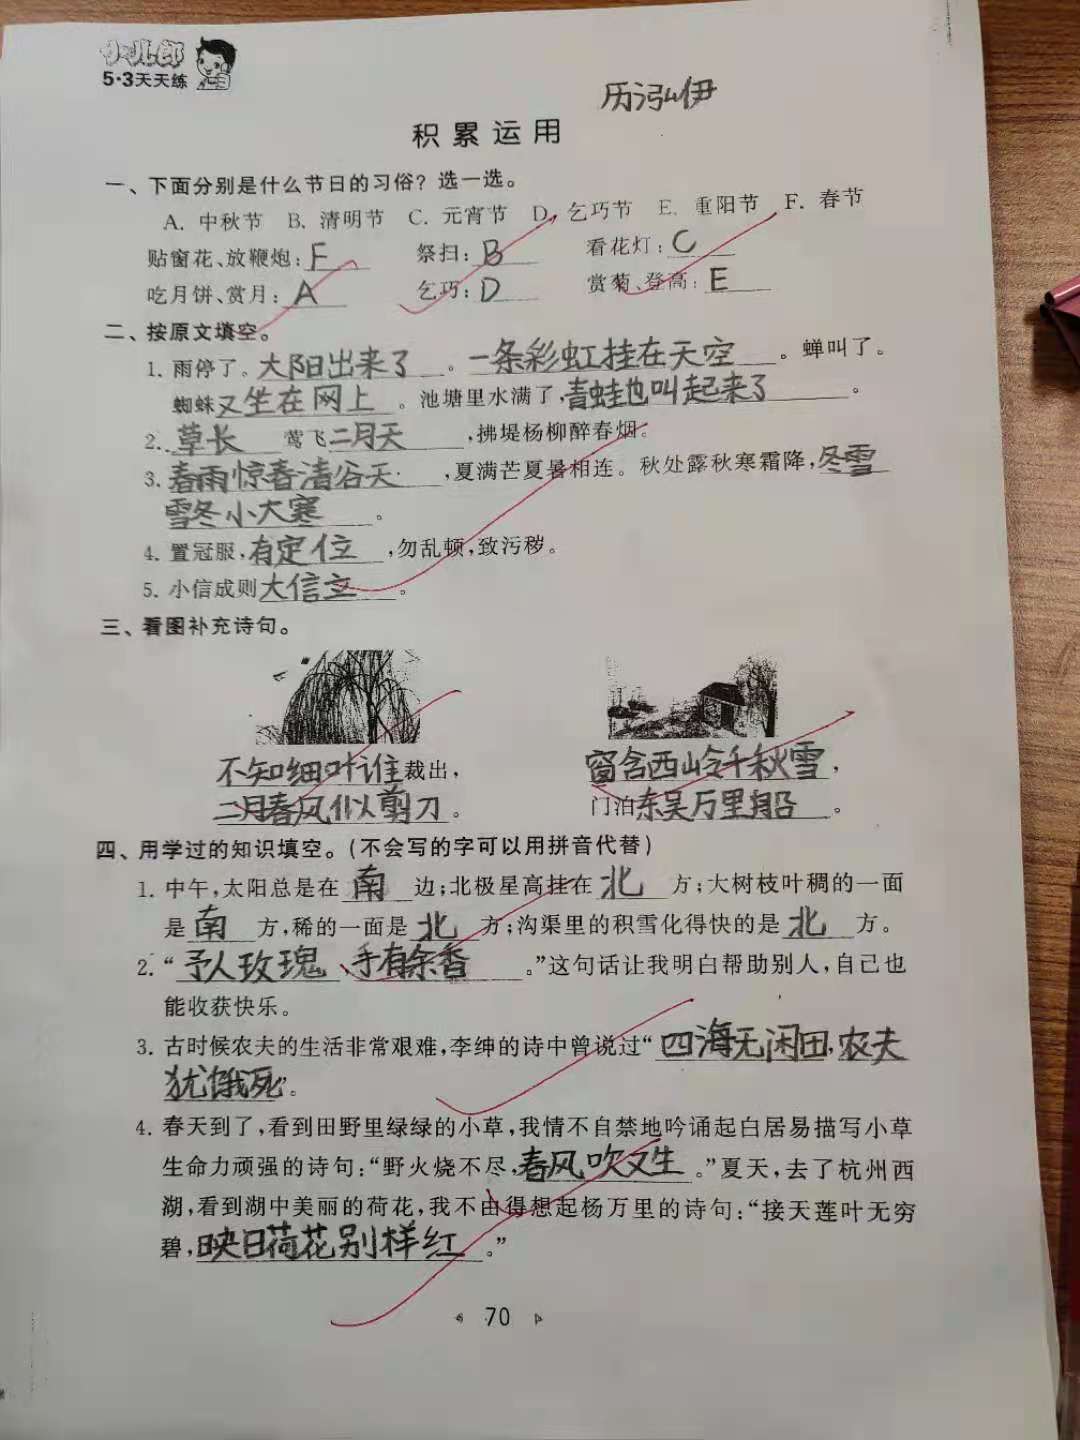 小儿郎
5·3天天练
历泓伊
积累运用
一、下面分别是什么节日的习俗？选一选。
A. 中秋节 B. 清明节 C. 元宵节 D. 乞巧节 E. 重阳节 F. 春节
贴窗花、放鞭炮：F 祭扫：B 看花灯：C
吃月饼、赏月：A 乞巧：D 赏菊、登高：E
二、按原文填空。
1. 雨停了。太阳出来了。一条彩虹挂在天空。蝉叫了。
蜘蛛又坐在网上。池塘里水满了，青蛙也叫起来了。
2. 草长莺飞二月天，拂堤杨柳醉春烟。
3. 春雨惊春清谷天，夏满芒夏暑相连。秋处露秋寒霜降，冬雪
雪冬小大寒。
4. 置冠服，有定位，勿乱顿，致污秽。
5. 小信成则大信立。
三、看图补充诗句。
不知细叶谁裁出， 窗含西岭千秋雪，
二月春风似剪刀。 门泊东吴万里船。
四、用学过的知识填空。（不会写的字可以用拼音代替）
1. 中午，太阳总是在南边；北极星高挂在北方；大树枝叶稠的一面
是南方，稀的一面是北方；沟渠里的积雪化得快的是北方。
2. “予人玫瑰、手有余香。”这句话让我明白帮助别人，自己也
能收获快乐。
3. 古时候农夫的生活非常艰难，李绅的诗中曾说过“四海无闲田，农夫
犹饿死”。
4. 春天到了，看到田野里绿绿的小草，我情不自禁地吟诵起白居易描写小草
生命力顽强的诗句：“野火烧不尽，春风吹又生。”夏天，去了杭州西
湖，看到湖中美丽的荷花，我不由得想起杨万里的诗句：“接天莲叶无穷
碧，映日荷花别样红。”
70